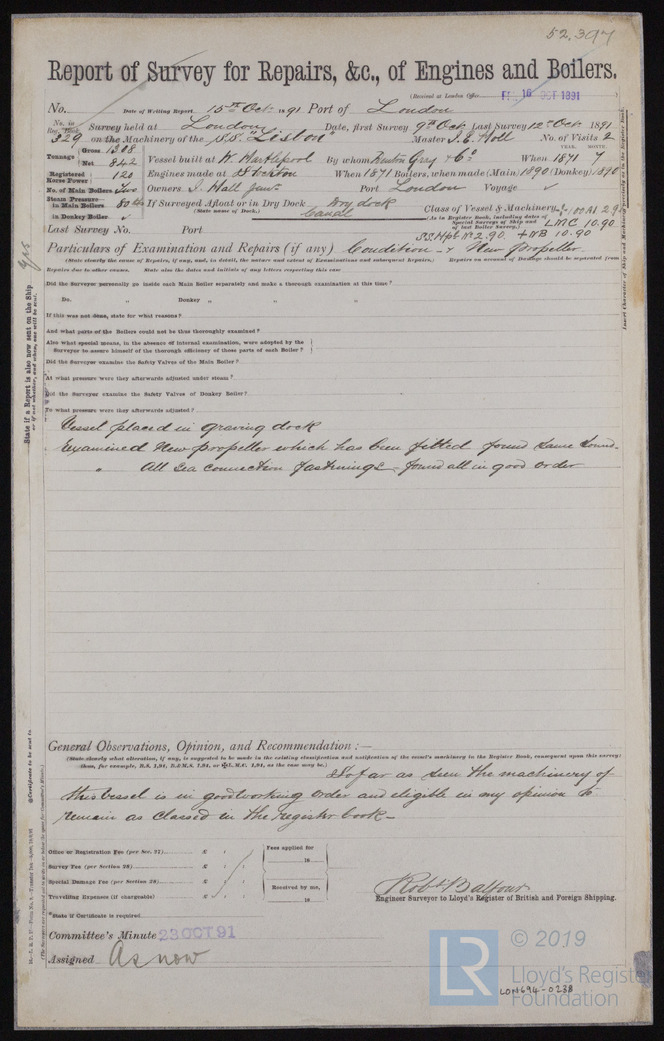 52,397
Report of Survey for Repairs, &c., of Engines and Boilers.
(Received at London Office FRI 16 OCT 1891)
No. Date of Writing Report 15th Oct 1891 Port of London
No. in Reg. Book. Survey held at London Date, first Survey 9th Oct Last Survey 12th Oct 1891
329 on the Machinery of the S.S. "Lisbon" Master J.E. Holl No. of Visits 2
Tonnage Gross 1308 Net 842 Vessel built at W. Hartlepool By whom Denton Gray & Co When 1871 7
YEAR. MONTH.
Registered Horse Power 120 Engines made at Stockton When 1871 Boilers, when made (Main) 1890 (Donkey) 1890
No. of Main Boilers Two Owners J. Hall Junr. Port London Voyage
Steam Pressure in Main Boilers 80 lb If Surveyed Afloat or in Dry Dock Dry dock
(State name of Dock.) Canal
in Donkey Boiler
Class of Vessel & Machinery 100A1 2.90
(As in Register Book, including dates of Special Surveys of Ship and of last Boiler Survey.) LMC 10.90
Last Survey No. Port
S.S. Hpl No 2.90 + NB 10.90
Particulars of Examination and Repairs (if any) Condition & New propeller
(State clearly the cause of Repairs, if any, and, in detail, the nature and extent of Examinations and subsequent Repairs.) Repairs on account of Damage should be separated from
Repairs due to other causes. State also the dates and initials of any letters respecting this case
Did the Surveyor personally go inside each Main Boiler separately and make a thorough examination at this time?
Do. " Donkey " " "
If this was not done, state for what reasons?
And what parts of the Boilers could not be thoroughly examined?
Also what special means, in the absence of internal examination, were adopted by the
Surveyor to assure himself of the thorough efficiency of those parts of each Boiler?
Did the Surveyor examine the Safety Valves of the Main Boiler?
At what pressure were they afterwards adjusted under steam?
Did the Surveyor examine the Safety Valves of Donkey Boiler?
To what pressure were they afterwards adjusted?
Vessel placed in graving dock
Examined New propeller which has been fitted found same sound.
" All sea connection fastenings - found all in good order
General Observations, Opinion, and Recommendation:—
(State clearly what alteration, if any, is suggested to be made in the existing classification and notification of the vessel's machinery in the Register Book, consequent upon this survey:
thus, for example, B.S. 1,91, B.&M.S. 1,91, or ✠L.M.C. 1,91, as the case may be.)
So far as seen the machinery of
this vessel is in good working order and eligible in my opinion to
remain as classed in the register book.
Office or Registration Fee (per Sec. 27) £ : :
Survey Fee (per Section 28) £ : :
Special Damage Fee (per Section 28) £ : :
Travelling Expenses (if chargeable) £ : :
Fees applied for
18
Received by me,
18
*State if Certificate is required
Robt Balfour
Engineer Surveyor to Lloyd's Register of British and Foreign Shipping.
Committee's Minute 23 OCT 91
Assigned As now
State if a Report is also now sent on the Ship
or if not whether, and when, one will be sent.
*Certificate to be sent to
Insert Character of Ship and Machinery precisely as in the Register Book.
LR
© 2019
Lloyd's Register
Foundation
LON694-0238